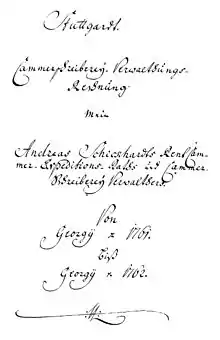 Stuttgardt.
Cammerschreiberey Verwaltungs-
Rechnung
Mein
Andreas Schickhardts Rent Cam-
mer-Expeditions-Raths und Cammer-
Schreiberey Verwalters.
Von
Georgÿ 1761.
biß
Georgÿ 1762.